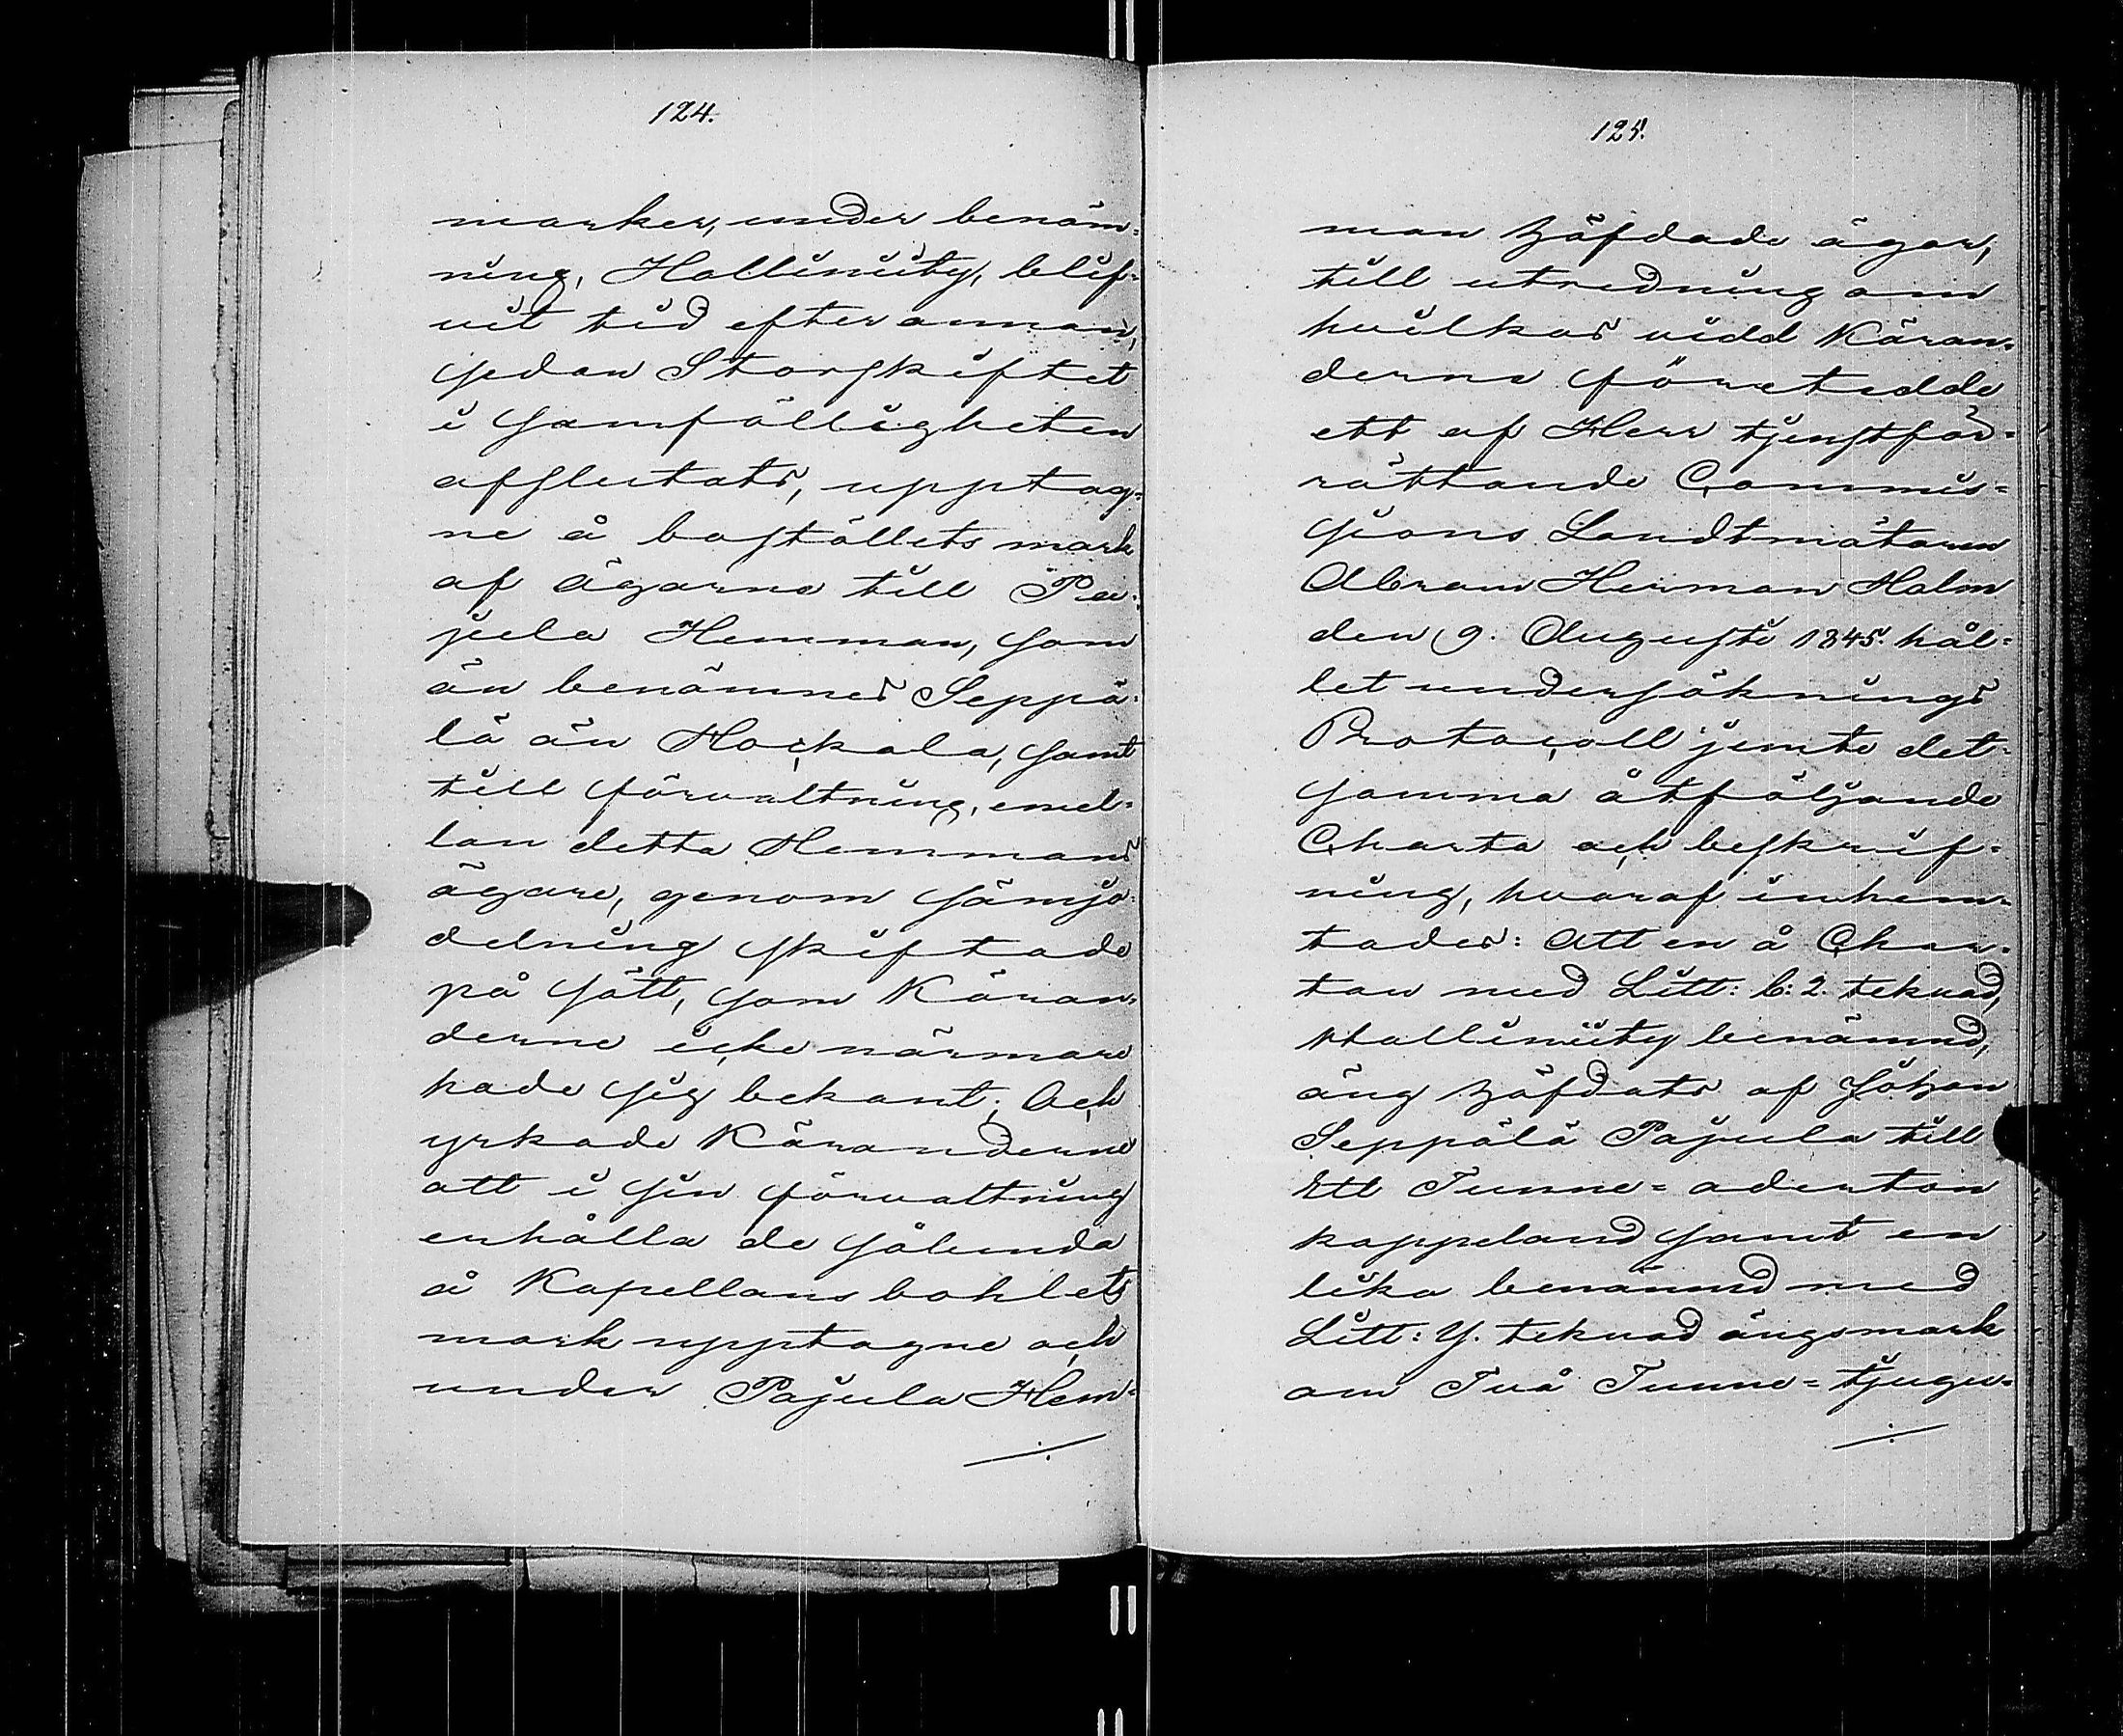 124.
marker, under benäm=
ning, Halliniity, blif=
vit tid efter annan,
sedan Storskiftet
i samfälligheten
afslutats, upptag=
ne å boställets mark
af ägarne till Pa=
jula Hemman, som
än benämnes Seppä=
lä än Hockala, samt
till förvaltning, emel=
lan detta Hemmans
ägare, genom sämjo=
delning skiftade
på sätt, som Käran=
derne icke närmare
hade sig bekant; Och
yrkade Käranderne
att i sin förvaltning
erhålla de sålunda
å Kapellansbohlets
mark upptagne och
under Pajula Hem=
./.
125.
man häfdade ägor,
till utredning om
hvilkas vidd Käran=
derne företedde
ett af Herr tjenstför=
rättande Commis=
sions Landtmätaren
Abram Herman Halm
den 9. Augusti 1845. hål=
let undersöknings
Protocoll jemte det=
samma åtföljande
Charta och beskrif=
ning, hvaraf inhem=
tades: Att en å Char=
tan med Litt: b: 2. teknad,
Halliniity benämnd,
äng häfdats af Johan
Seppälä Pajula till
Ett Tunne= aderton
kappeland samt en
lika benämnd med
Litt: Y. teknad ängsmark
om Två Tunne= tjugu=
./.